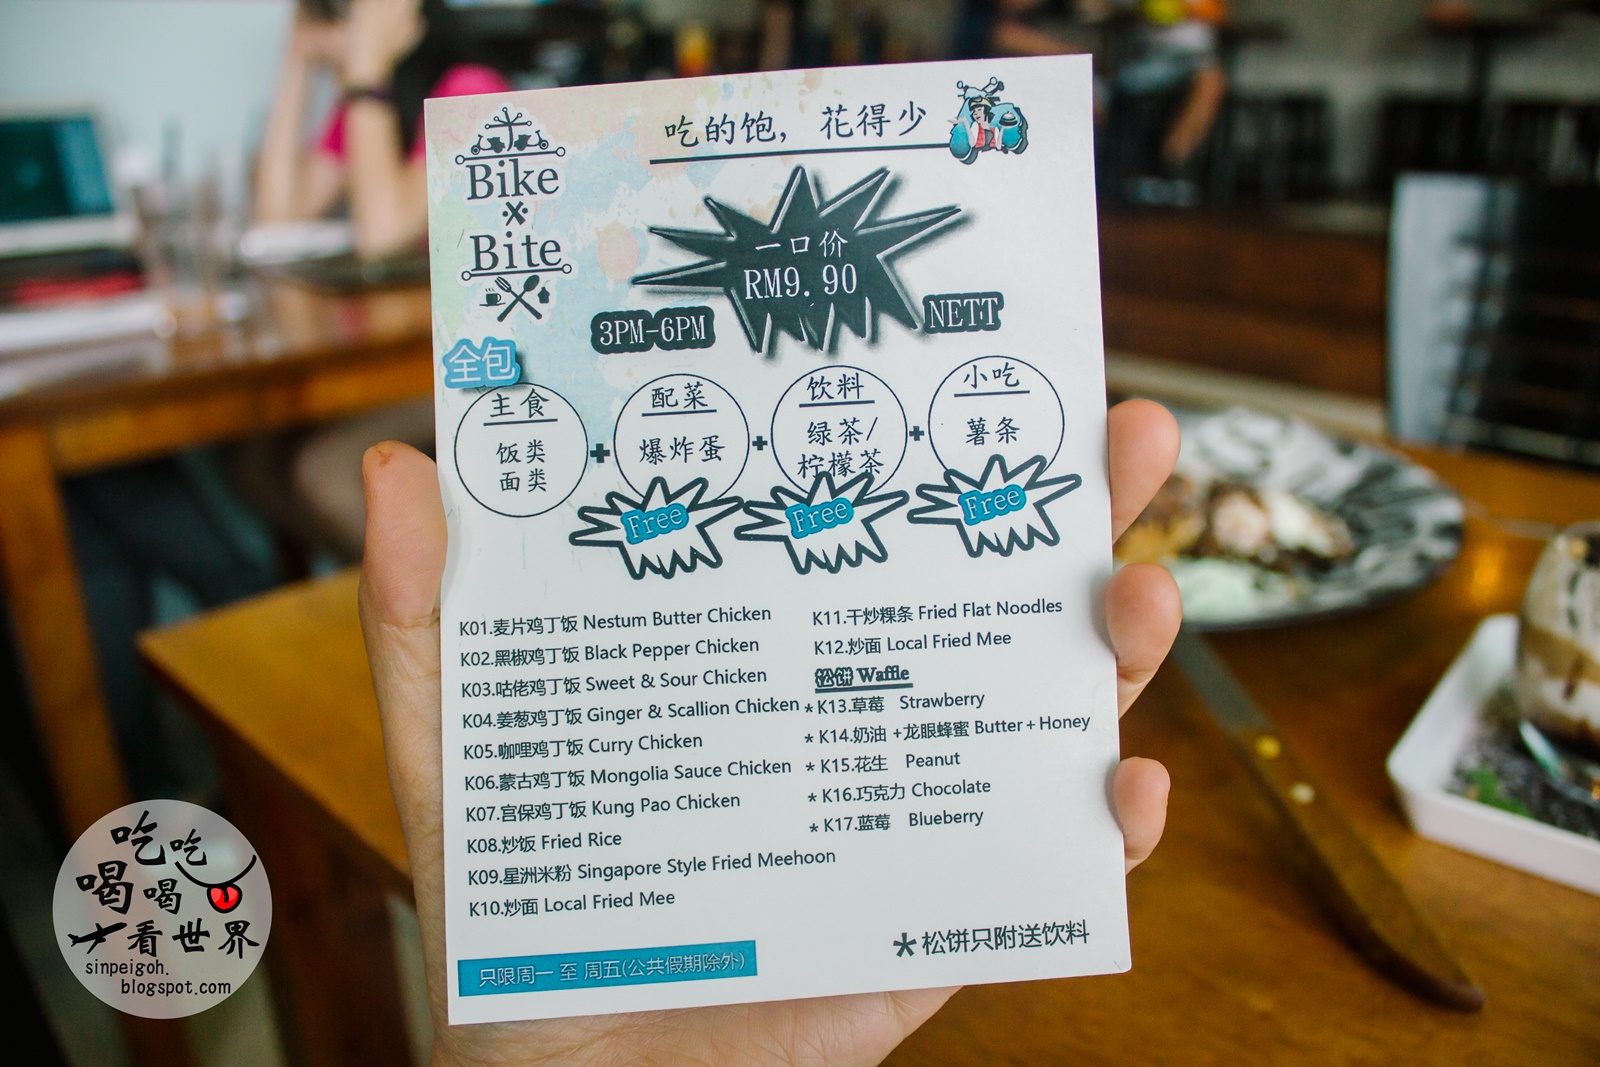 Bike
×
Bite
吃的饱, 花得少
一口价
RM9.90
3PM-6PM
NETT
全包
主食
饭类
面类
+
配菜
爆炸蛋
Free
+
饮料
绿茶/
柠檬茶
Free
+
小吃
薯条
Free
K01.麦片鸡丁饭 Nestum Butter Chicken
K02.黑椒鸡丁饭 Black Pepper Chicken
K03.咕佬鸡丁饭 Sweet & Sour Chicken
K04.姜葱鸡丁饭 Ginger & Scallion Chicken
K05.咖哩鸡丁饭 Curry Chicken
K06.蒙古鸡丁饭 Mongolia Sauce Chicken
K07.宫保鸡丁饭 Kung Pao Chicken
K08.炒饭 Fried Rice
K09.星洲米粉 Singapore Style Fried Meehoon
K10.炒面 Local Fried Mee
K11.干炒粿条 Fried Flat Noodles
K12.炒面 Local Fried Mee
松饼 Waffle
* K13.草莓 Strawberry
* K14.奶油 +龙眼蜂蜜 Butter+Honey
* K15.花生 Peanut
* K16.巧克力 Chocolate
* K17.蓝莓 Blueberry
*松饼只附送饮料
只限周一 至 周五(公共假期除外)
吃吃
喝喝
看世界
sinpeigoh.
blogspot.com